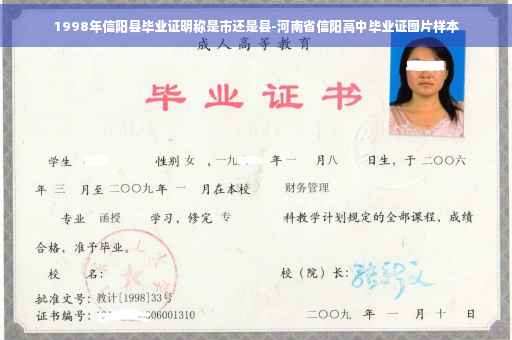 1998年信阳县毕业证明称是市还是县-河南省信阳高中毕业证图片样本
成人高等教育
毕业证书
学生 性别 女 ，一九 年 一 月八 日生，于 二〇〇六
年 三 月至 二〇〇九 年 一 月在本校 财务管理
专业 函授 学习，修完 专 科教学计划规定的全部课程，成绩
合格，准予毕业。
校 名： 校（院）长：
批准文号：教计[1998]33号
证书编号： 06001310 二〇〇九 年 一 月 十 日